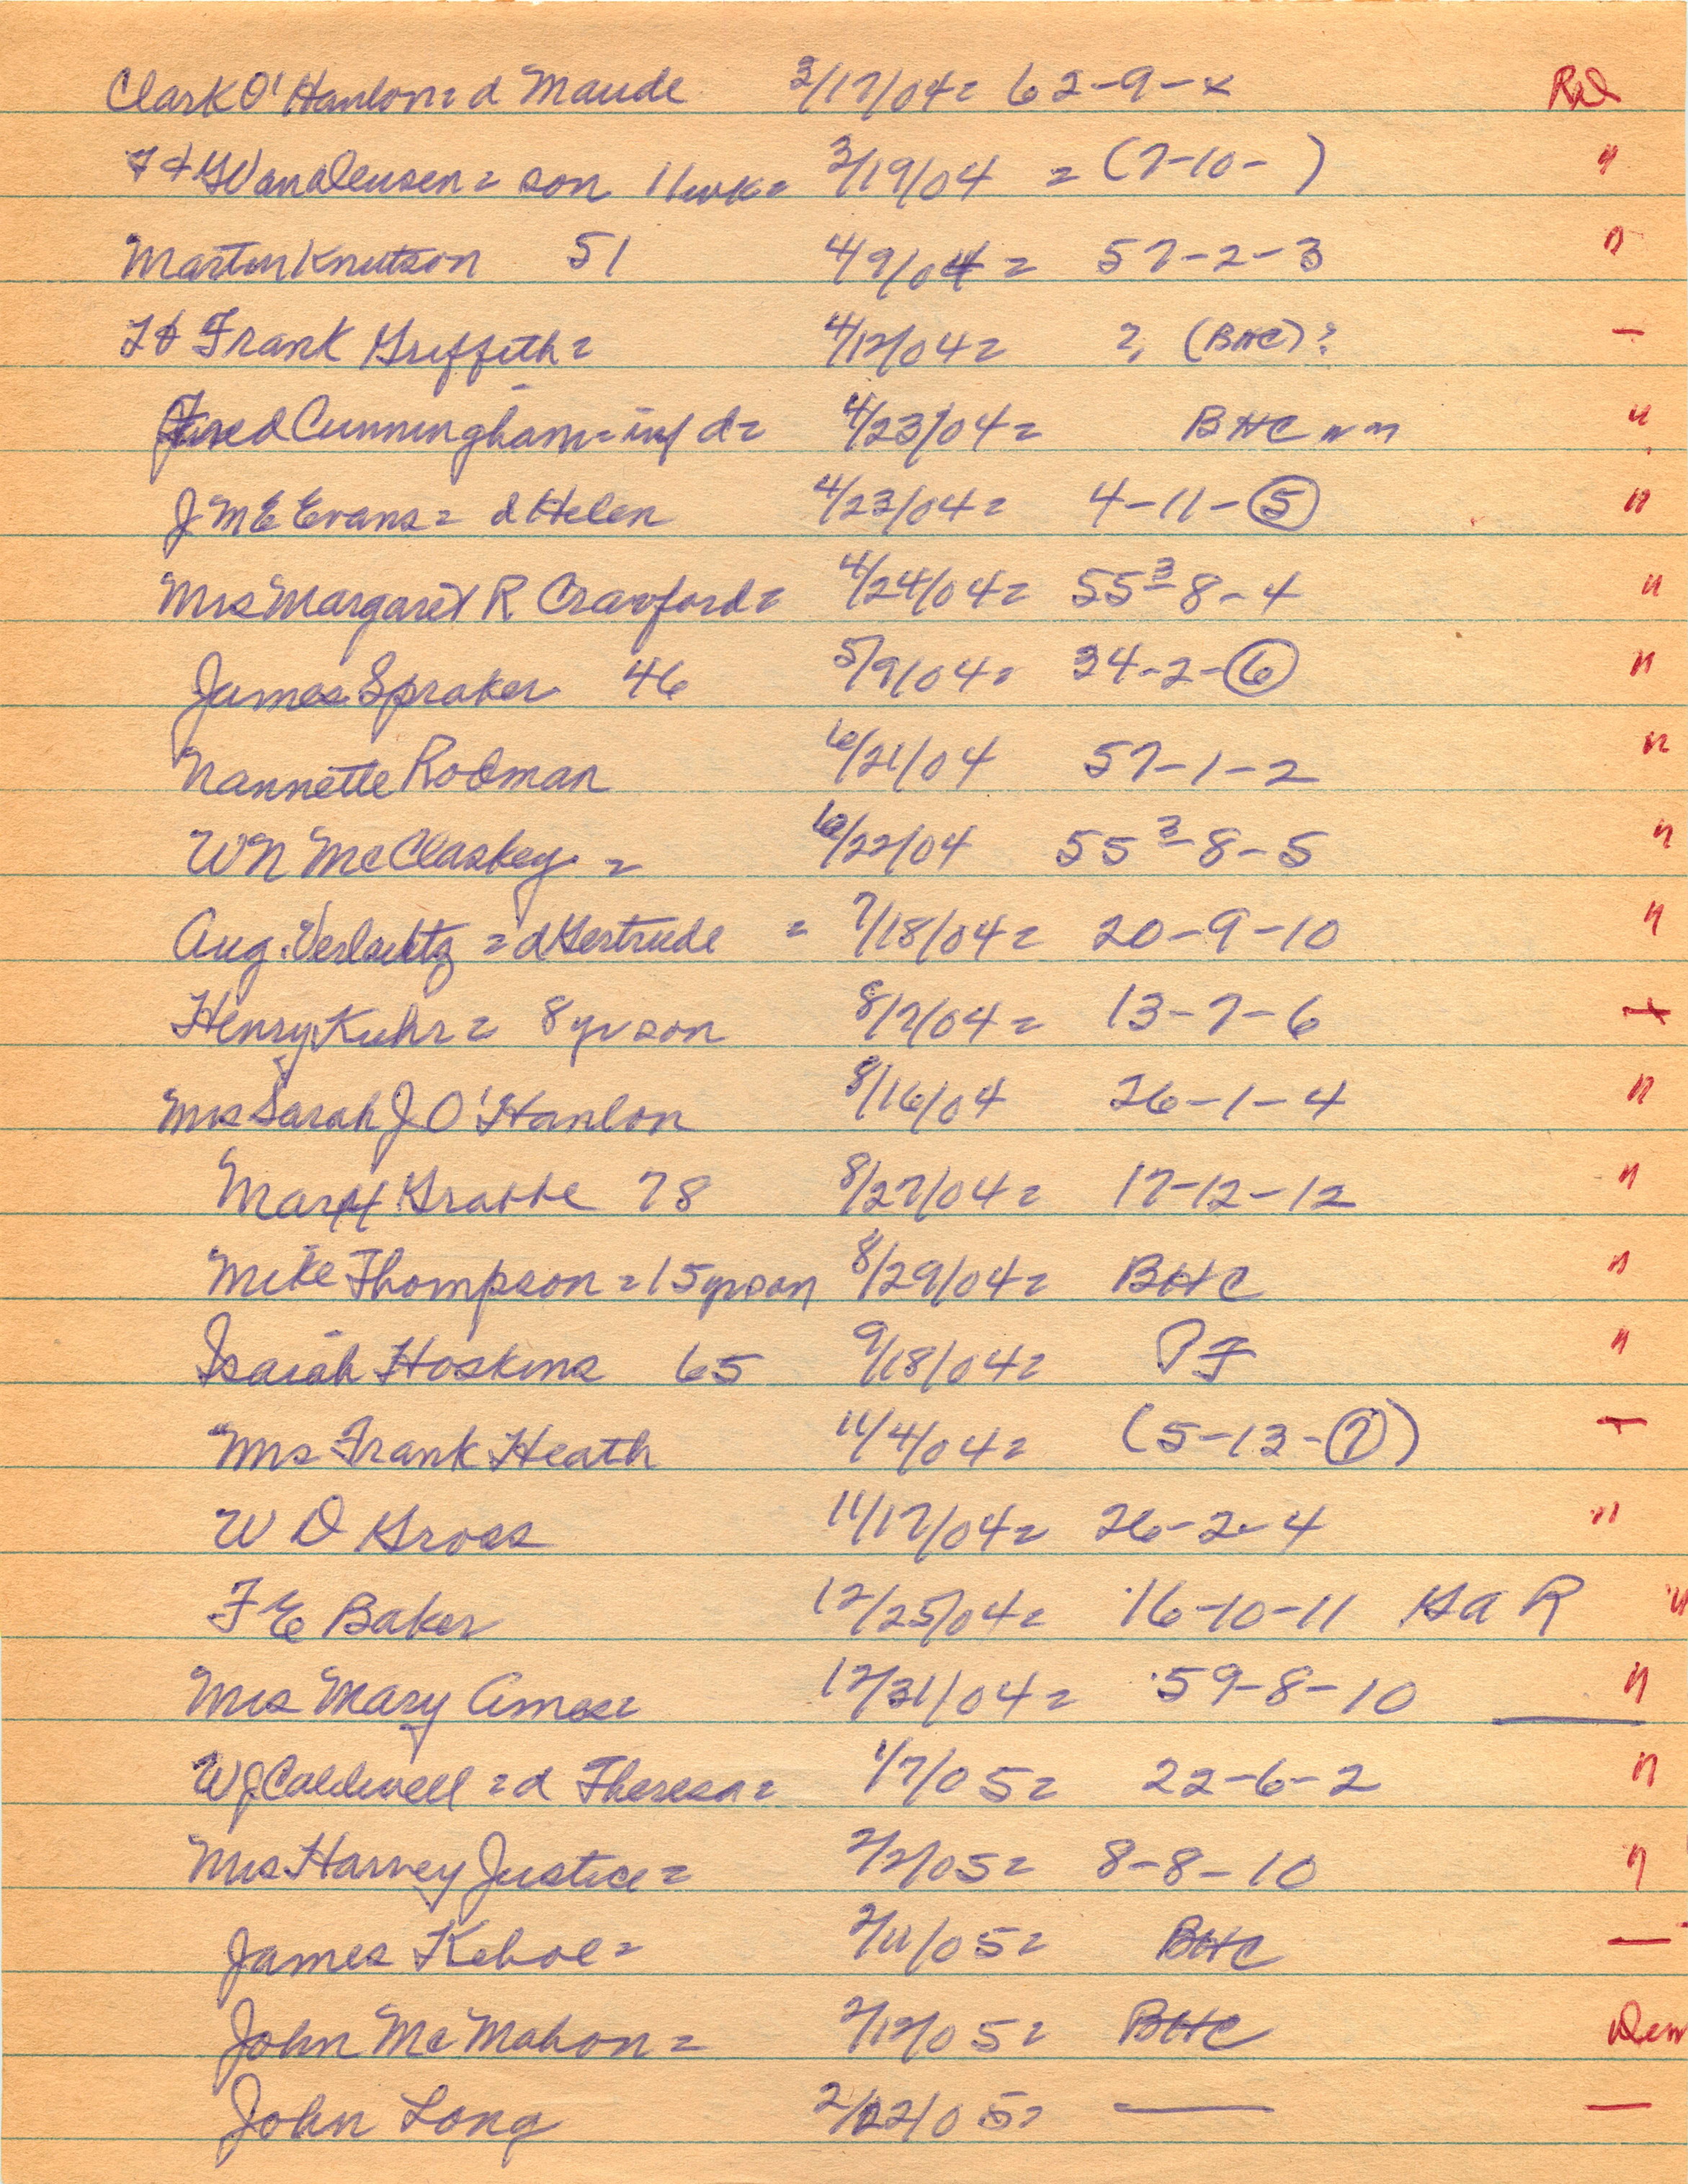 Clark O'Hanlon = d Maude 3/17/04 = 62-9-x Rd
Vandeusen = son 11 wk = 3/19/04 = (7-10- ) "
Martin Knutson 51 4/9/04 = 57-2-3 "
Frank Griffith = 4/12/04 = ?, (BHC)? —
Cunningham = inf d = 4/23/04 = BHC nm "
J M E Evans = d Helen 4/23/04 = 4-11-5 "
Mrs Margaret R Crawford = 4/24/04 = 55 3-8-4 "
James Spraker 46 5/9/04 = 34-2-6 "
Nannette Rodman 6/21/04 57-1-2 "
W N McClaskey = 6/22/04 55 3-8-5 "
Aug. = d Gertrude = 7/18/04 = 20-9-10 "
Henry Kuhr = 8 yr son 8/7/04 = 13-7-6
Mrs Sarah J O'Hanlon 8/16/04 26-1-4 "
78 8/27/04 = 17-12-12 "
Mike Thompson = 15 yr son 8/29/04 = BHC "
Isaiah Hoskins 65 9/18/04 = PF "
Mrs Frank Heath 11/4/04 = (5-13-7) —
W D Gross 11/17/04 = 26-2-4 "
F E Baker 12/25/04 = 16-10-11 GaR "
Mrs Mary Ames = 12/31/04 = 59-8-10 "
W J Caldwell = d Theresa = 1/7/05 = 22-6-2 "
Mrs Harvey Justice = 2/2/05 = 8-8-10 "
James Kehoe = 2/11/05 = BHC —
John McMahon = 2/12/05 = BHC Dem
John Long 2/22/05 = — —